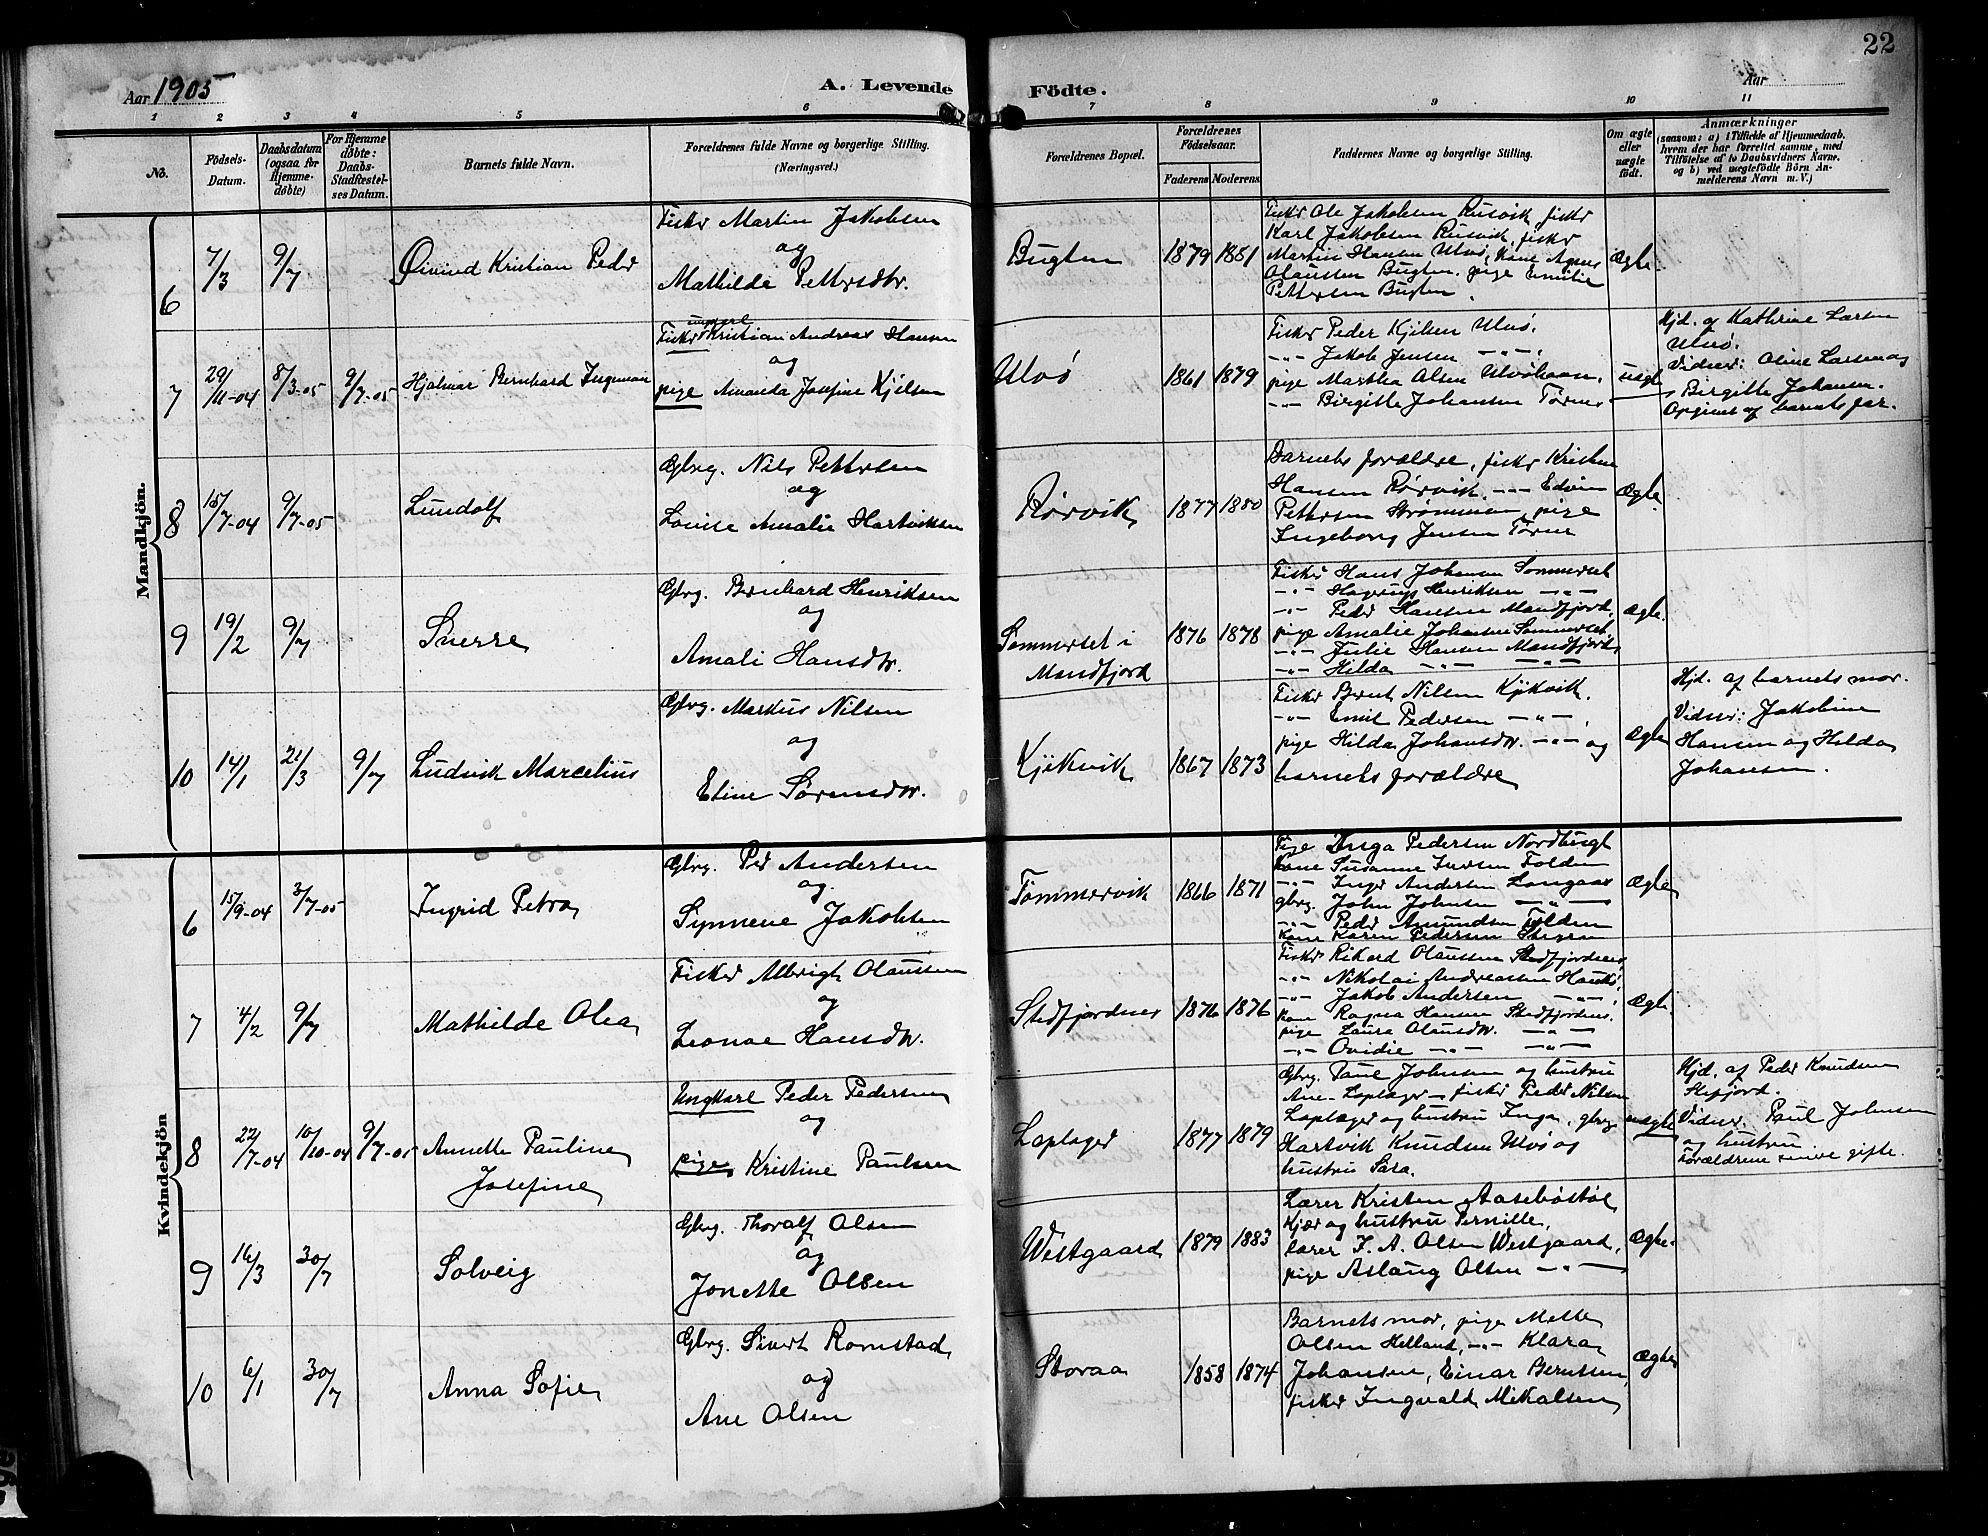 22
Aar 1905
A. Levende Födte.
Aar
1 2 3 4 5 6 7 8 9 10 11
No.
Födsels-Datum.
Daabsdatum (ogsaa for Hjemme-döbte)
For Hjemme döbte: Daabs-Stadfæstelses Datum.
Barnets fulde Navn.
Forældrenes fulde Navne og borgerlige Stilling. (Næringsvei.)
Forældrenes Bopæl.
Forældrenes Födselsaar.
Faderens Moderens
Faddernes Navne og borgerlige Stilling.
Om ægte eller uægte födt.
Anmærkninger
(saasom: a) i Tilfælde af Hjemmedaab, hvem der har forrettet samme, med Tilföielse af to Daabsvidners Navne. og b) ved uægtefödte Börn Anmelderens Navn m. V.)
Mandkjön.
6
7/3
9/7
Øivind Kristian Peder
Fisker Martin Jakobsen
og
Mathilde Pettersdtr.
Bugten
1879 1881
Fisker Ole Jakobsen Rusvik, fisker
Karl Jakobsen Rusvik, fisker
Martin Hansen Ulvø, Kone Agnes
Olaussen Bugten, pige Emilie
Pettersen Bugten.
Ægte.
7
29/11-04
8/3-05
9/7-05
Hjalmar Bernhard Ingeman
ungkarl
Fisker Kristian Andreas Hansen
og
pige Amanda Josefine Kjilsen
Ulvø
1861 1879
Fisker Peder Kjilsen Ulvø,
-"- Jakob Jensen -"-,
pige Martha Olsen Ulvøhavn,
-"- Birgitte Johansen Tørnes
uægte
Hjd. af Kathrine Larsen
Ulvø.
Vidner: Oline Larsen og
Birgitte Johansen.
Opgivet af barnets far.
8
15/7-04
9/7-05
Lundolf
Gbrg. Nils Pettersen
og
Lovise Amalie Hartviksen
Rørvik
1877 1880
Barnets forældre, fisker Kristen
Hansen Rørvik, -"- Edvin
Pettersen Strømmen, pige
Ingeborg Jensen Tørne
Ægte.
9
19/2
9/7
Sverre
Gbrg. Bernhard Henriksen
og
Amali Hansdtr.
Sommerset i
Mandfjord
1876 1878
Fisker Hans Johansen Sommerset
-"- Hagerup Henriksen -"-
-"- Peder Hansen Mandfjord,
pige Amalie Johansen Sommerset
-"- Julie Hansen Mandfjord,
-"- Hilda -"- -"-
Ægte.
10
14/1
21/3
9/7
Ludvik Marcelius
Gbrg. Markus Nilsen
og
Eline Sørensdtr.
Kjikvik
1867 1873
Fisker Bernt Nilsen Kjikvik.
-"- Emil Pedersen -"-,
pige Hilda Johansdtr. -"- og
barnets forældre
Ægte
Hjd. af barnets mor.
Vidner: Jakobine
Hansen og Hilda
Johansen.
Kvindekjön
6
15/9-04
3/7-05
Ingrid Petra
Gbrg. Peder Andersen
og
Synnene Jakobsen
Tømmervik
1866 1871
Pige Inga Pedersen Nordbugt
Kone Susanne Iversen Folden
-"- Inger Andersen Langaas
gbrg. John Johnsen -"-
-"- Peder Amundsen Folden
Kone Karen Pedersen Stegen
Ægte
7
4/2
9/7
Mathilde Olea
Fisker Albrigt Olaussen
og
Leonae Hansdtr.
Stedfjordnes
1876 1876
Fisker Rikard Olaussen Stedfjordnes,
-"- Nikolai Andreassen
-"- Jakob Andersen -"-,
Kone Ragna Hansen Stedfjordnes,
pige Laura Olausdtr. -"-
-"- Ovidie -"- -"-
Ægte.
8
22/7-04
10/10-04
9/7-05
Annette Pauline
Josefine
Ungkarl Peder Pedersen
og
pige Kristine Paulsen
Laplager
1877 1879
Gbrg. Paul Johnsen og hustru
Ane - Laplager - fisker Peder Nilsen
Laplager og hustru Inga, gbrg.
Hartvik Knudsen Ulvø og
hustru Sara.
uægte
Hjd. af Peder Knudsen
Stefjord.
Vidner: Paul Johnsen
og hustru.
Forældrene senere gifte.
9
16/3
30/7
Solveig
Gbrg. Thoralf Olsen
og
Jonette Olsen
Westgaard
1879 1883
Lærer Kristen Aasebøstøl
Kjær og hustru Pernille,
lærer J. A. Olsen Westgaard,
pige Aslaug Olsen -"-
Ægte.
10
6/1
30/7
Anna Sofie
Gbrg. Sivert Romstad
og
Ane Olsen
Storaa
1858 1874
Barnets mor, pige Mette
Olsen Helland, -"- Klara
Johansen, Einar Berntsen,
fisker Ingvald Mikalsen
Ægte